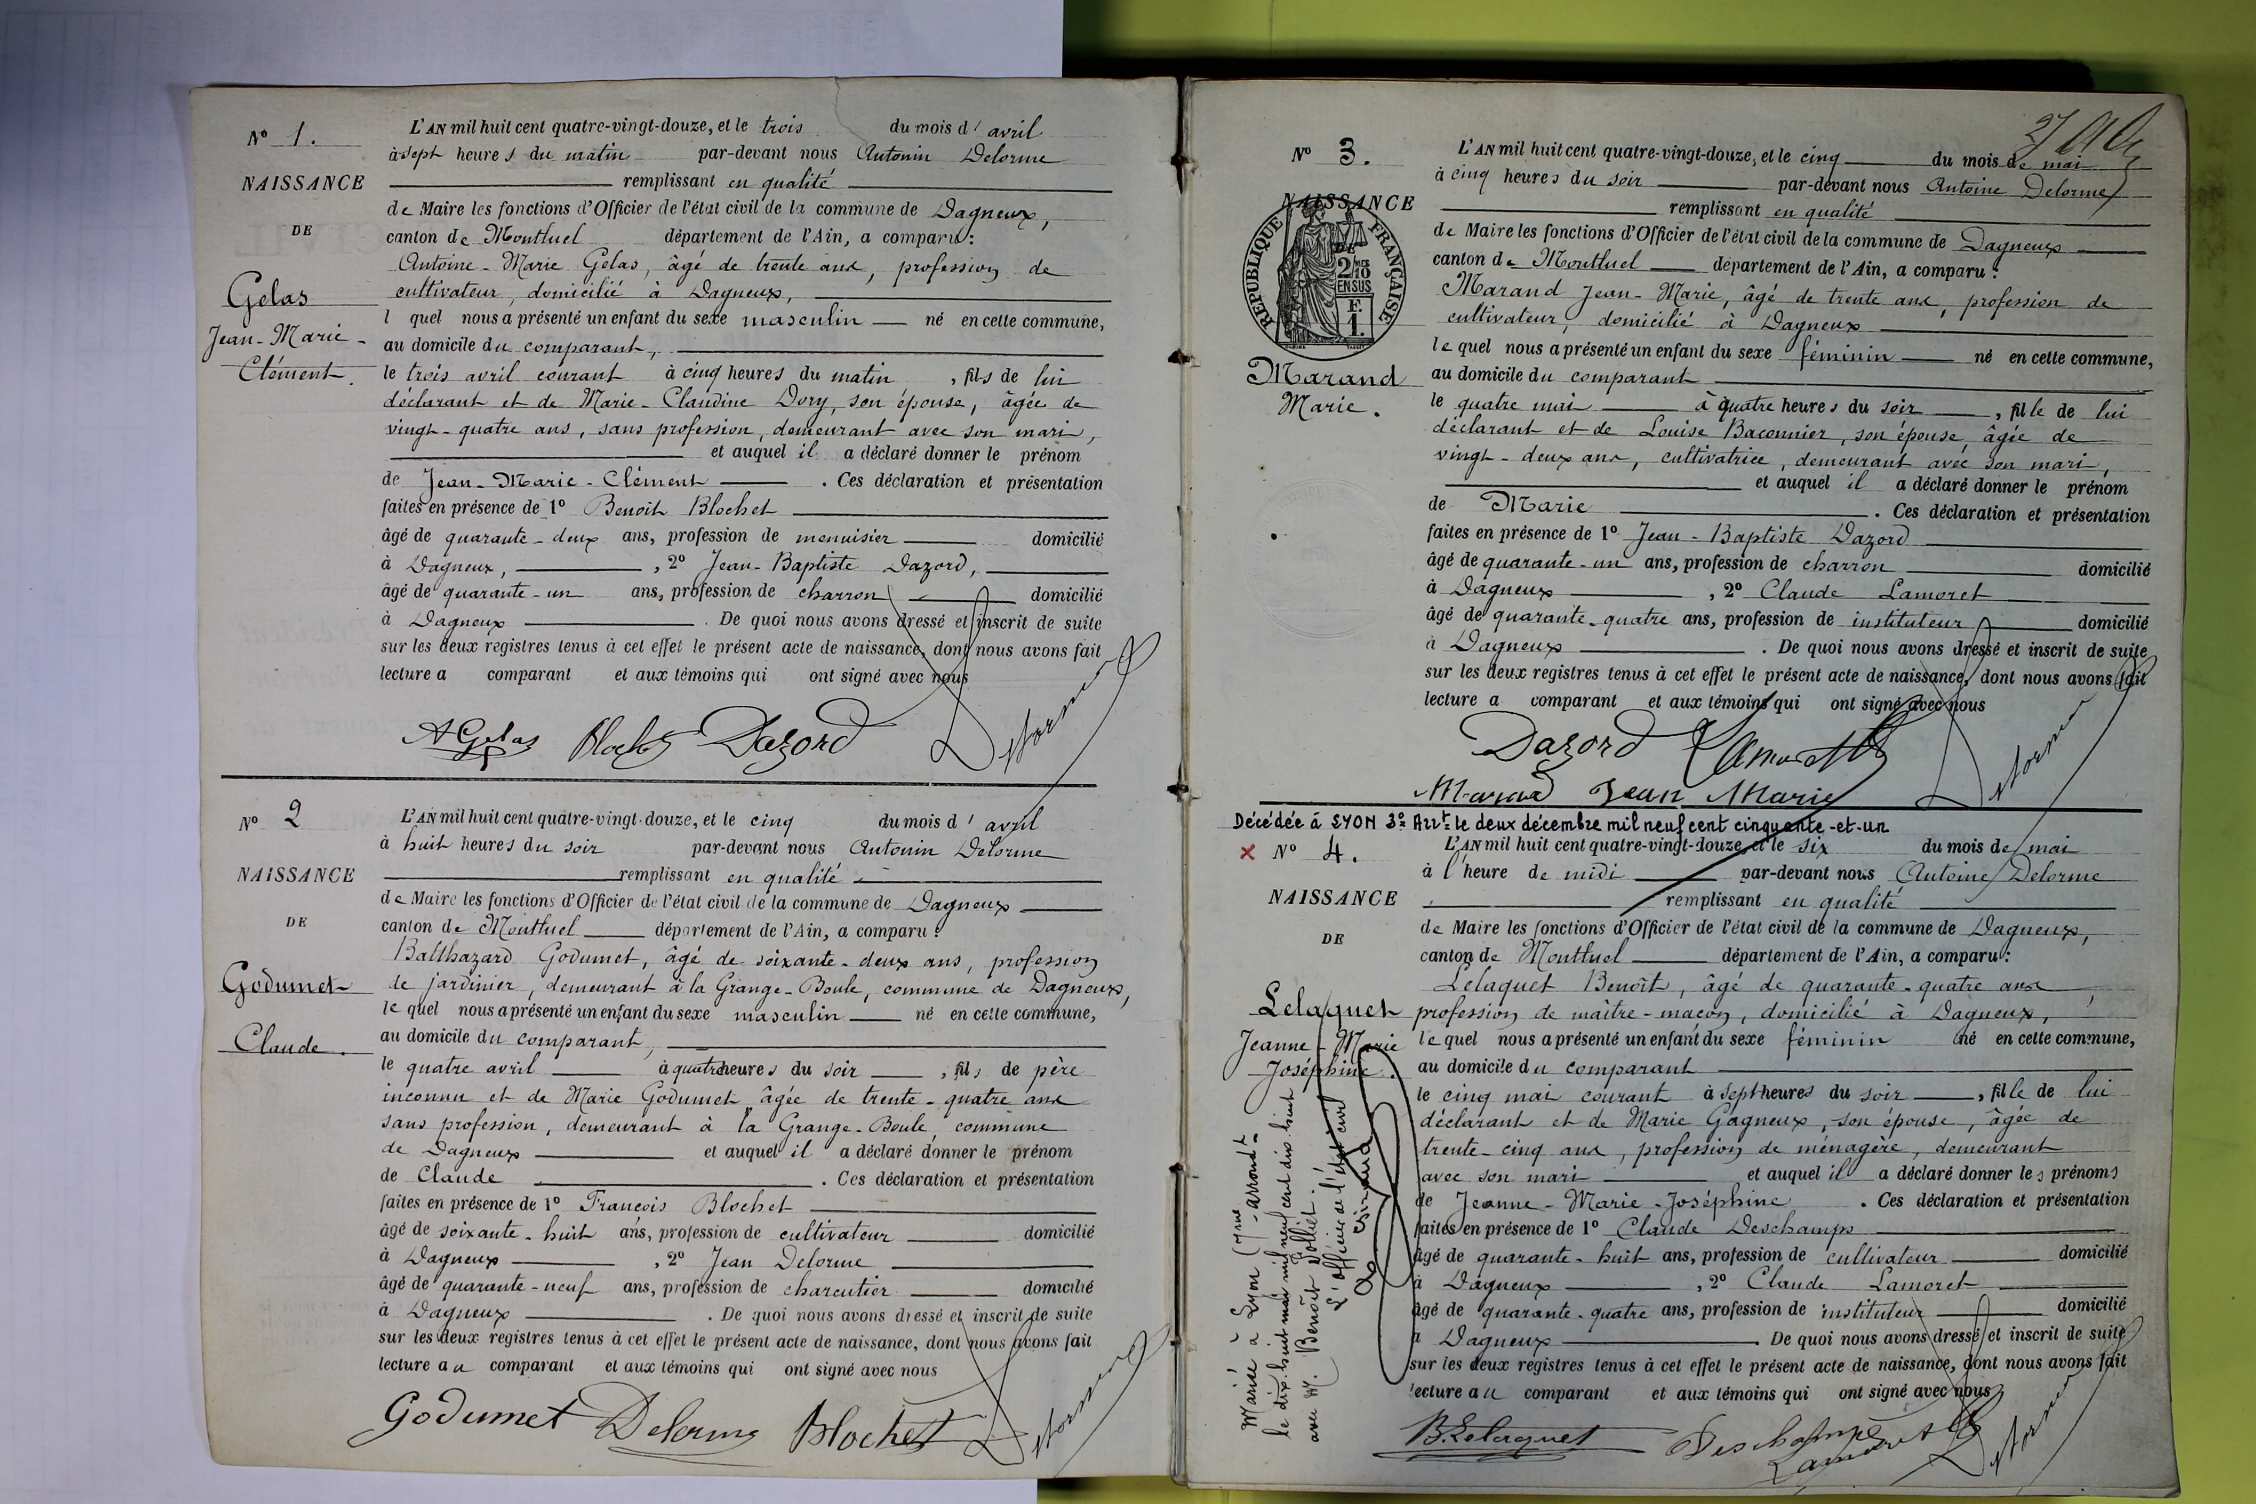 N° 1.
NAISSANCE
DE
Gelas
Jean-Marie-
Clément.
L'AN mil huit cent quatre-vingt-douze, et le trois du mois d'avril
à sept heures du matin par-devant nous Antonin Delorme
remplissant en qualité
de Maire les fonctions d'Officier de l'état civil de la commune de Dagneux,
canton de Montluel département de l'Ain, a comparu:
Antoine-Marie Gelas, âgé de trente ans, profession de
cultivateur, domicilié à Dagneux,
l quel nous a présenté un enfant du sexe masculin né en cette commune,
au domicile du comparant,
le trois avril courant à cinq heures du matin, fils de lui
déclarant et de Marie-Claudine Dory, son épouse, âgée de
vingt-quatre ans, sans profession, demeurant avec son mari,
et auquel il a déclaré donner le prénom
de Jean-Marie-Clément. Ces déclaration et présentation
faites en présence de 1° Benoit Blochet
âgé de quarante-deux ans, profession de menuisier domicilié
à Dagneux, , 2° Jean-Baptiste Dazord,
âgé de quarante-un ans, profession de charron domicilié
à Dagneux. De quoi nous avons dressé et inscrit de suite
sur les deux registres tenus à cet effet le présent acte de naissance, dont nous avons fait
lecture a comparant et aux témoins qui ont signé avec nous
A Gelas Blochet Dazord Delorme
N° 2
NAISSANCE
DE
Godumet
Claude.
L'AN mil huit cent quatre-vingt-douze, et le cinq du mois d'avril
à huit heures du soir par-devant nous Antonin Delorme
remplissant en qualité
de Maire les fonctions d'Officier de l'état civil de la commune de Dagneux
canton de Montluel département de l'Ain, a comparu:
Balthazard Godumet, âgé de soixante-deux ans, profession
de jardinier, demeurant à la Grange-Boule, commune de Dagneux,
lequel nous a présenté un enfant du sexe masculin né en cette commune,
au domicile du comparant,
le quatre avril à quatre heures du soir, fils de père
inconnu et de Marie Godumet âgée de trente-quatre ans
sans profession, demeurant à la Grange-Boule, commune
de Dagneux et auquel il a déclaré donner le prénom
de Claude. Ces déclaration et présentation
faites en présence de 1° François Blochet
âgé de soixante-huit ans, profession de cultivateur domicilié
à Dagneux, 2° Jean Delorme
âgé de quarante-neuf ans, profession de charcutier domicilié
à Dagneux. De quoi nous avons dressé et inscrit de suite
sur les deux registres tenus à cet effet le présent acte de naissance, dont nous avons fait
lecture au comparant et aux témoins qui ont signé avec nous
Godumet Delorme Blochet Delorme
N° 3.
NAISSANCE
DE
RÉPUBLIQUE FRANÇAISE
2/10 EN SUS
F. 1.
Marand
Marie.
L'AN mil huit cent quatre-vingt-douze, et le cinq du mois de mai
à cinq heures du soir par-devant nous Antoine Delorme
remplissant en qualité
de Maire les fonctions d'Officier de l'état civil de la commune de Dagneux
canton de Montluel département de l'Ain, a comparu:
Marand Jean-Marie, âgé de trente ans, profession de
cultivateur, domicilié à Dagneux
lequel nous a présenté un enfant du sexe féminin né en cette commune,
au domicile du comparant
le quatre mai à quatre heures du soir, fille de lui
déclarant et de Louise Baconnier, son épouse, âgée de
vingt-deux ans, cultivatrice, demeurant avec son mari,
et auquel il a déclaré donner le prénom
de Marie. Ces déclaration et présentation
faites en présence de 1° Jean-Baptiste Dazord
âgé de quarante-un ans, profession de charron domicilié
à Dagneux, 2° Claude Lamoret
âgé de quarante-quatre ans, profession de instituteur domicilié
à Dagneux. De quoi nous avons dressé et inscrit de suite
sur les deux registres tenus à cet effet le présent acte de naissance, dont nous avons fait
lecture a comparant et aux témoins qui ont signé avec nous
Dazord Lamoret Delorme
Marand Jean Marie
Décédée à LYON 3e Arrt le deux décembre mil neuf cent cinquante-et-un
× N° 4.
NAISSANCE
DE
Lelaquet
Jeanne-Marie
Joséphine.
Mariée à Lyon arrondt
le dix-huit mai mil neuf cent dix huit
avec M. Benoît Polliet.
L'officier de l'état civil
L'AN mil huit cent quatre-vingt-douze, et le six du mois de mai
à l'heure de midi par-devant nous Antoine Delorme
remplissant en qualité
de Maire les fonctions d'Officier de l'état civil de la commune de Dagneux,
canton de Montluel département de l'Ain, a comparu:
Lelaquet Benoît, âgé de quarante-quatre ans
profession de maître-maçon, domicilié à Dagneux,
lequel nous a présenté un enfant du sexe féminin né en cette commune,
au domicile du comparant
le cinq mai courant à sept heures du soir, fille de lui
déclarant et de Marie Gagneux, son épouse, âgée de
trente-cinq ans, profession de ménagère, demeurant
avec son mari et auquel il a déclaré donner les prénoms
de Jeanne-Marie-Joséphine. Ces déclaration et présentation
faites en présence de 1° Claude Deschamps
âgé de quarante-huit ans, profession de cultivateur domicilié
à Dagneux, 2° Claude Lamoret
âgé de quarante-quatre ans, profession de instituteur domicilié
à Dagneux. De quoi nous avons dressé et inscrit de suite
sur les deux registres tenus à cet effet le présent acte de naissance, dont nous avons fait
lecture au comparant et aux témoins qui ont signé avec nous
B. Lelaquet Deschamps Delorme
Lamoret